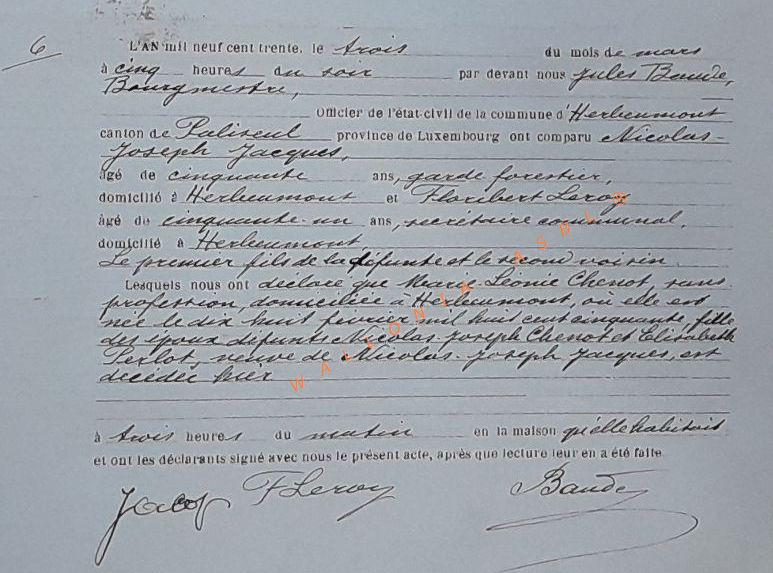 6
L'AN mil neuf cent trente, le trois du mois de mars
à cinq heures du soir par devant nous Jules Baude,
Bourgmestre,
Officier de l'état-civil de la commune d'Herbeumont
canton de Paliseul province de Luxembourg ont comparu Nicolas-
Joseph Jacques,
âgé de cinquante ans, garde forestier,
domicilié à Herbeumont et Floribert Leroy
âgé de cinquante-un ans, secrétaire communal,
domicilié à Herbeumont,
Le premier fils de la défunte et le second voisin.
Lesquels nous ont déclaré que Marie-Léonie Chenot, sans
profession, domiciliée à Herbeumont, où elle est
née le dix huit février mil huit cent cinquante, fille
des époux défunts Nicolas-Joseph Chenot et Elisabeth
Perlot, veuve de Nicolas-Joseph Jacques, est
décédée hier
à trois heures du matin en la maison qu'elle habitait
et ont les déclarants signé avec nous le présent acte, après que lecture leur en a été faite.
FLeroy Baude
WALLONIA ASBL